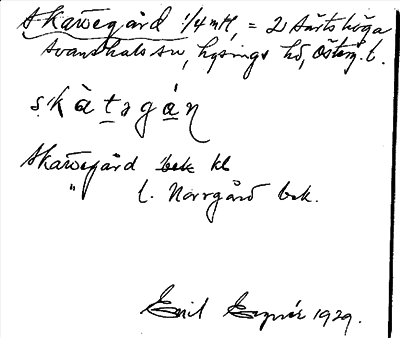 Skategård 1/4 mtl, = 2 Västhöga
Svanshals sn, Lysings hd, Österg. l.
skàtagán
Skategård bek kl
" l. Norrgård bek.
Emil 1929.